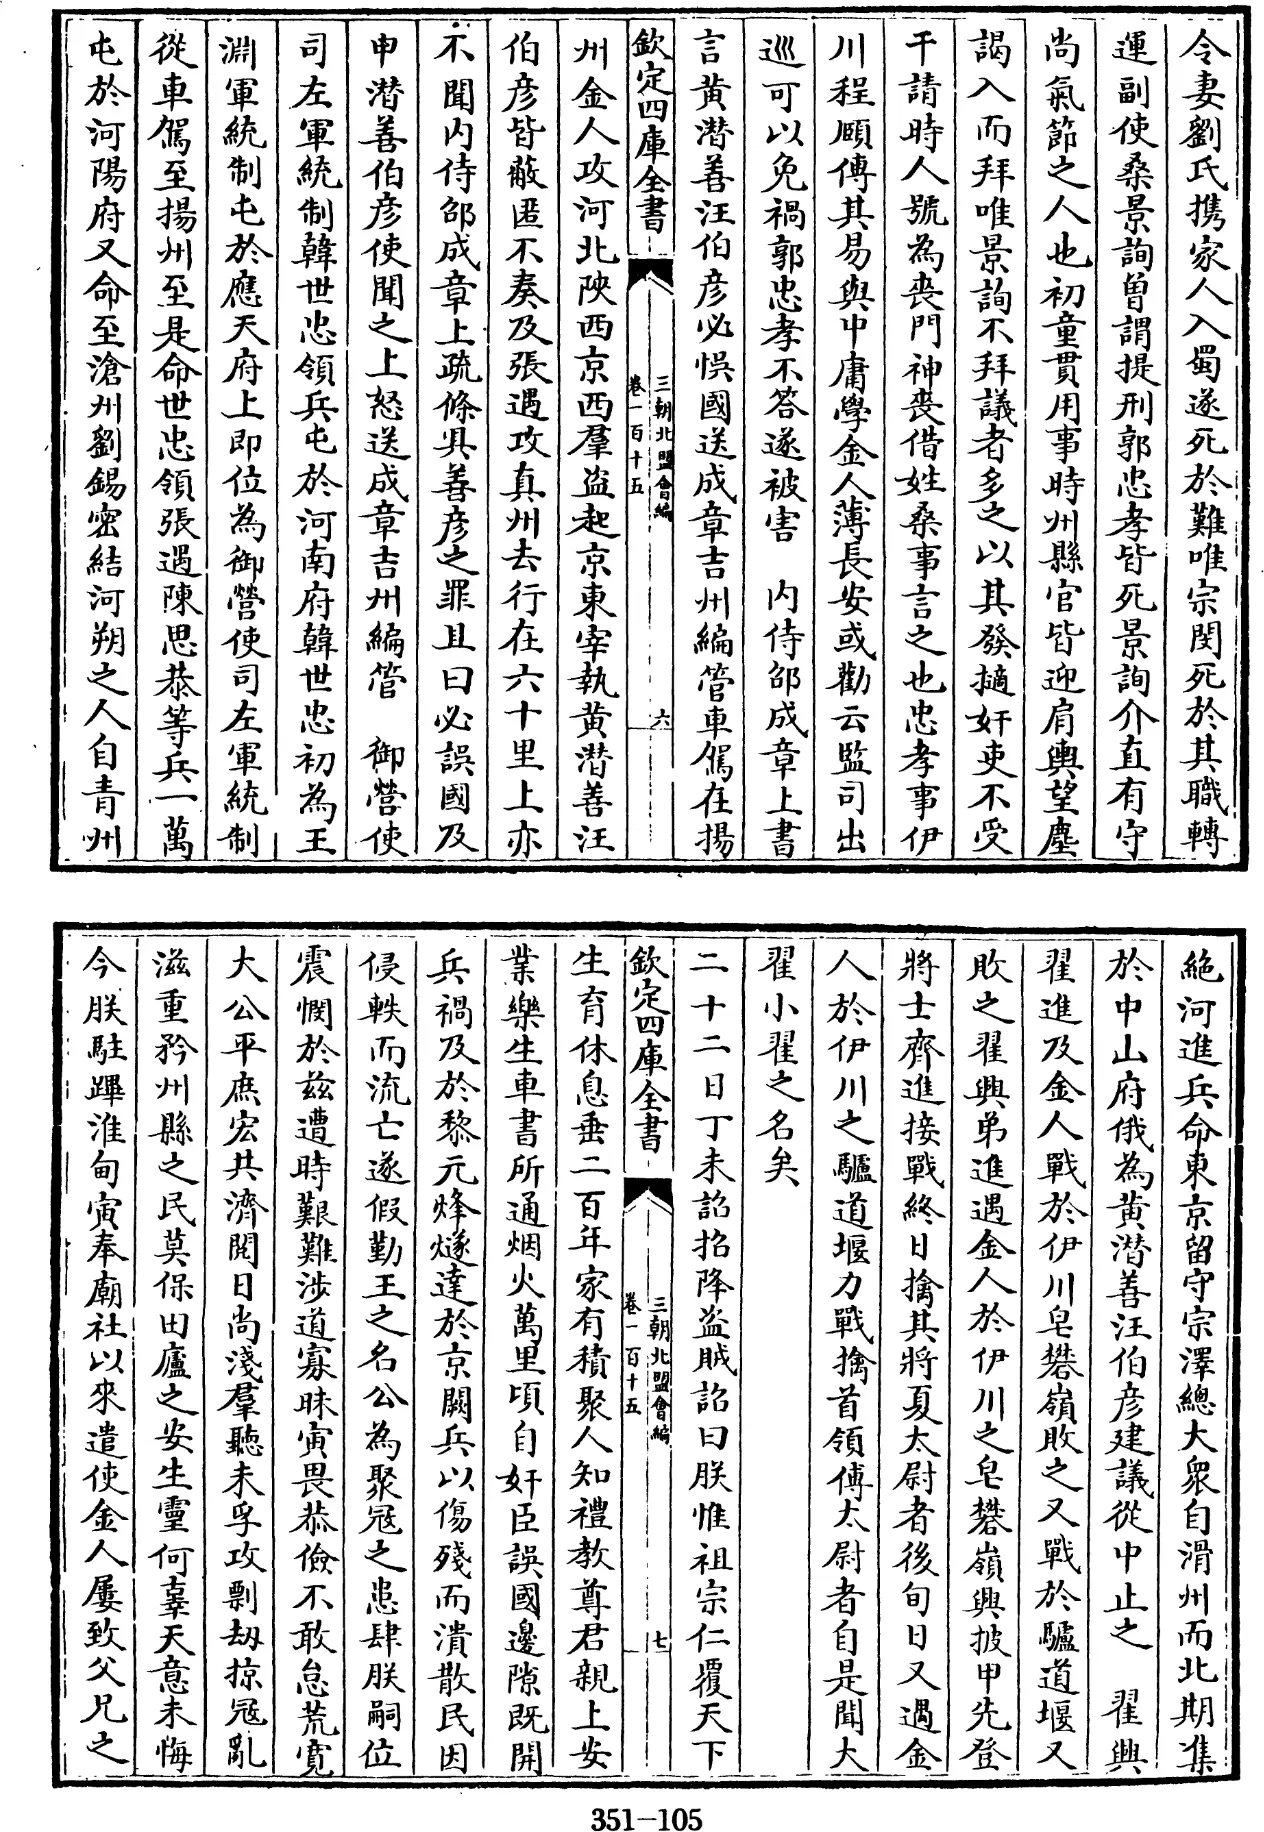 令妻劉氏携家人入蜀遂死於難唯宗閔死於其職轉
運副使桑景詢曽謂提刑郭忠孝皆死景詢介直有守
尚氣節之人也初童貫用事時州縣官皆迎肩輿望塵
謁入而拜唯景詢不拜議者多之以其發擿奸吏不受
干請時人號為喪門神喪借姓桑事言之也忠孝事伊
川程頤傳其易與中庸學金人薄長安或勸云監司出
巡可以免禍郭忠孝不答遂被害　内侍邵成章上書
言黄潛善汪伯彦必悮國送成章吉州編管車駕在揚
欽定四庫全書
三朝北盟會編
卷一百十五
六
州金人攻河北陜西京西羣盗起京東宰執黄潛善汪
伯彦皆蔽匿不奏及張遇攻真州去行在六十里上亦
不聞内侍邵成章上疏條具善彦之罪且曰必誤國及
申潛善伯彦使聞之上怒送成章吉州編管　御營使
司左軍統制韓世忠領兵屯於河南府韓世忠初為王
淵軍統制屯於應天府上即位為御營使司左軍統制
從車駕至揚州至是命世忠領張遇陳思恭等兵一萬
屯於河陽府又命至滄州劉錫密結河朔之人自青州
絶河進兵命東京留守宗澤總大衆自滑州而北期集
於中山府俄為黄潛善汪伯彦建議從中止之　翟興
翟進及金人戰於伊川皂礬嶺敗之又戰於驢道堰又
敗之翟興弟進遇金人於伊川之皂礬嶺興披甲先登
將士齊進接戰終日擒其將夏太尉者後旬日又遇金
人於伊川之驢道堰力戰擒首領傅太尉者自是聞大
翟小翟之名矣
二十二日丁未詔招降盗賊詔曰朕惟祖宗仁覆天下
欽定四庫全書
三朝北盟會編
卷一百十五
七
生育休息垂二百年家有積聚人知禮教尊君親上安
業樂生車書所通烟火萬里頃自奸臣誤國邊隙既開
兵禍及於黎元烽燧達於京闕兵以傷殘而潰散民因
侵軼而流亡遂假勤王之名公為聚冦之患肆朕嗣位
震憫於兹遭時艱難涉道寡昧寅畏恭儉不敢怠荒寛
大公平庶宏共濟閱日尚淺羣聽未孚攻剽刼掠冦亂
滋重矜州縣之民莫保田廬之安生靈何辜天意未悔
今朕駐蹕淮甸寅奉廟社以來遣使金人屢致父兄之
351-105